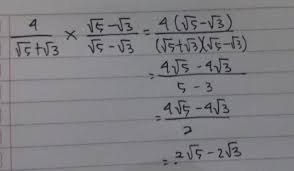 4/(√5+√3) × (√5-√3)/(√5-√3) = 4(√5-√3)/((√5+√3)(√5-√3))
= (4√5-4√3)/(5-3)
= (4√5-4√3)/2
= 2√5-2√3